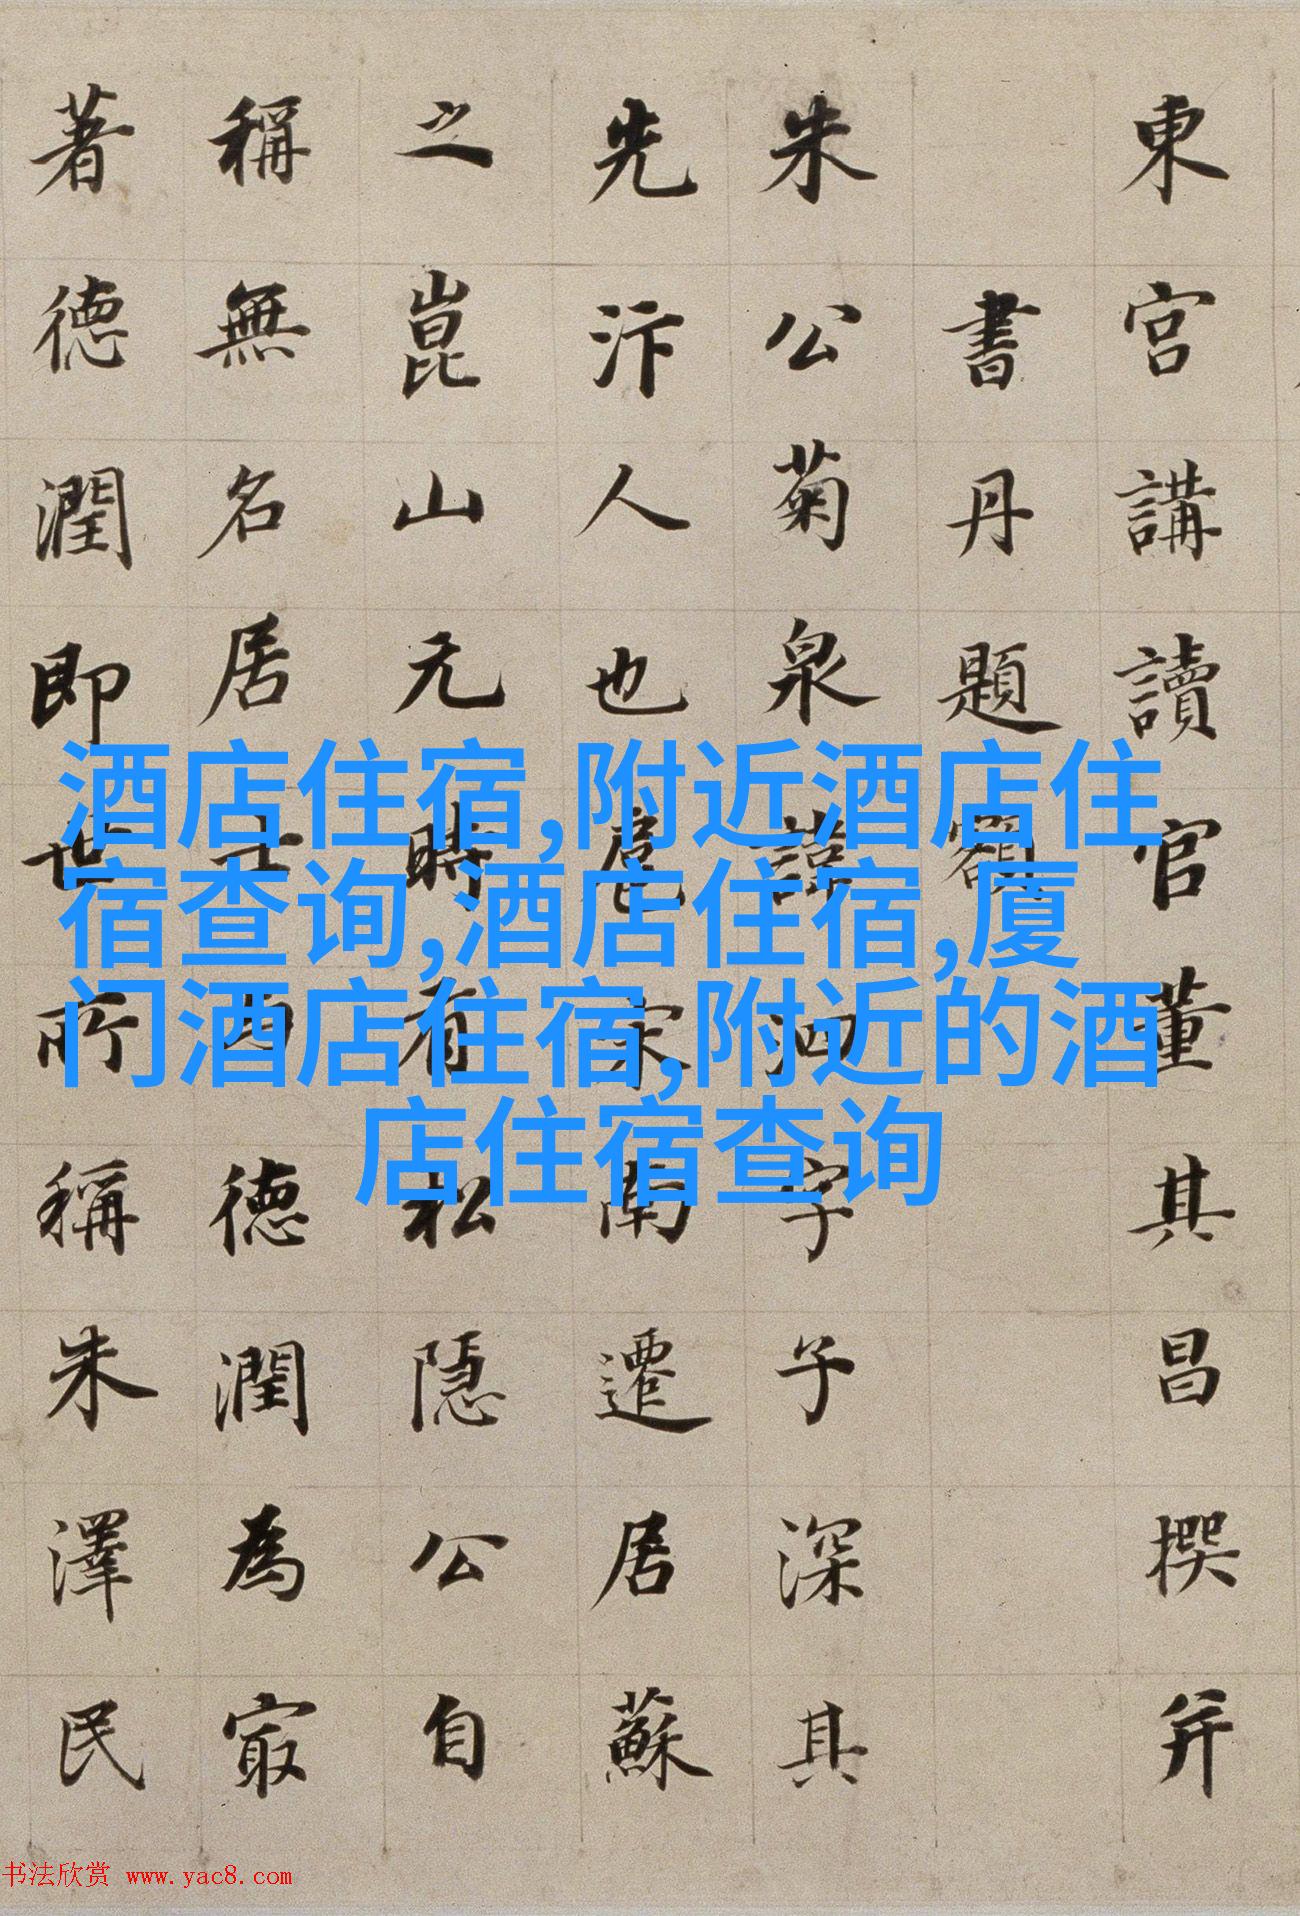 東宮講讀官董其昌撰并
書丹題額
朱公菊泉諱泗字子深其
先汴人也扈宋南遷居蘇
之崑山元時有松隱公自
稱無名居士德潤為冣
著德潤即世所稱朱澤民
酒店住宿,附近酒店住
宿查询,酒店住宿,厦
门酒店住宿,附近的酒
店住宿查询
书法欣赏 www.yac8.com